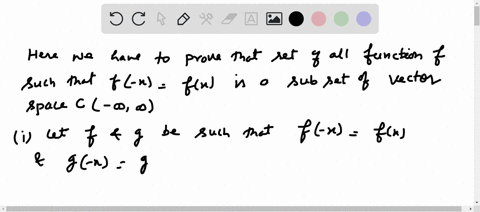 Here we have to prove that set of all function f
such that f(-x) = f(x) is a sub set of vector
space C(-∞, ∞)
(i) Let f & g be such that f(-x) = f(x)
& g(-x) = g